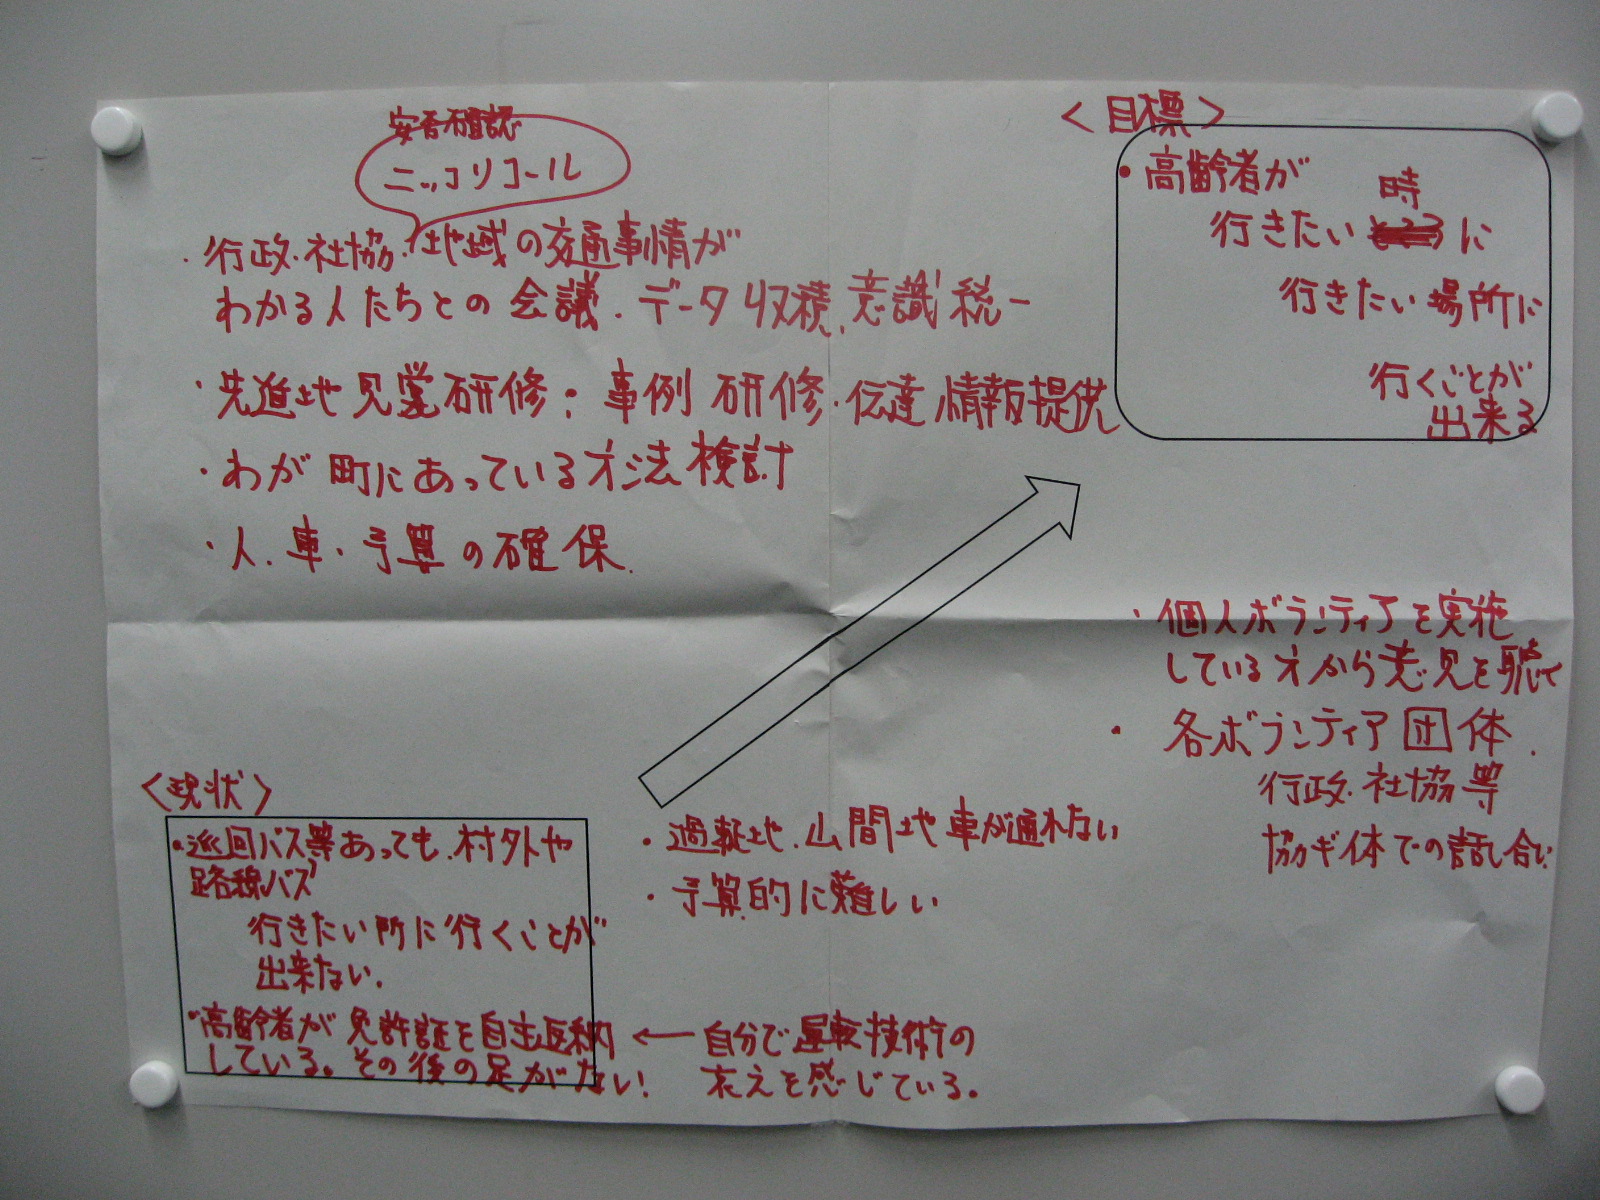 安否確認
ニッコリコール
・行政・社協・地域の交通事情が
わかる人たちとの会議・データ収積、意識統一
・先進地見学研修：事例研修・伝達情報提供
・わが町にあっている方法検討
・人・車・予算の確保.
<目標>
・高齢者が
時
行きたい に
行きたい場所に
行くことが
出来る
・個人ボランティアを実施
している方から意見を聴く
・各ボランティア団体.
行政・社協等
協力ギ体での話し合い
<現状>
・巡回バス等あっても、村外や
路線バス
行きたい所に行くことが
出来ない.
・高齢者が免許証を自主返納
している。その後の足がない!
← 自分で運転技術の
衰えを感じている。
・過疎地、山間地車が通れない
・予算的に難しい